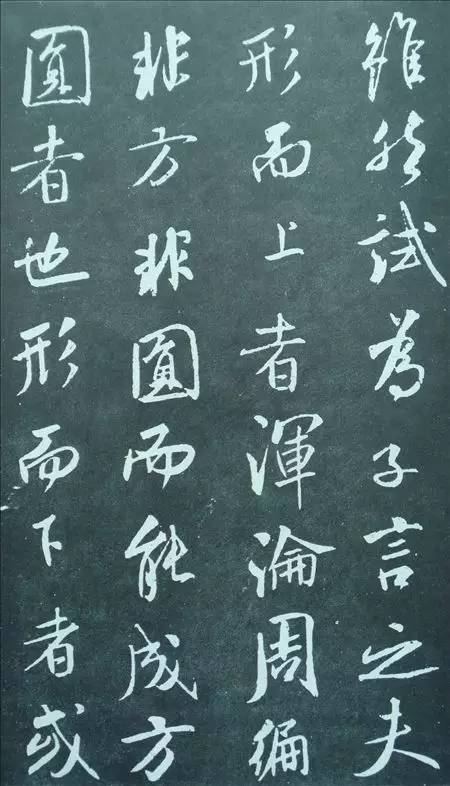 雖然試為子言之夫
形而上者渾淪周徧
非方非圓而能成方
圓者也形而下者或